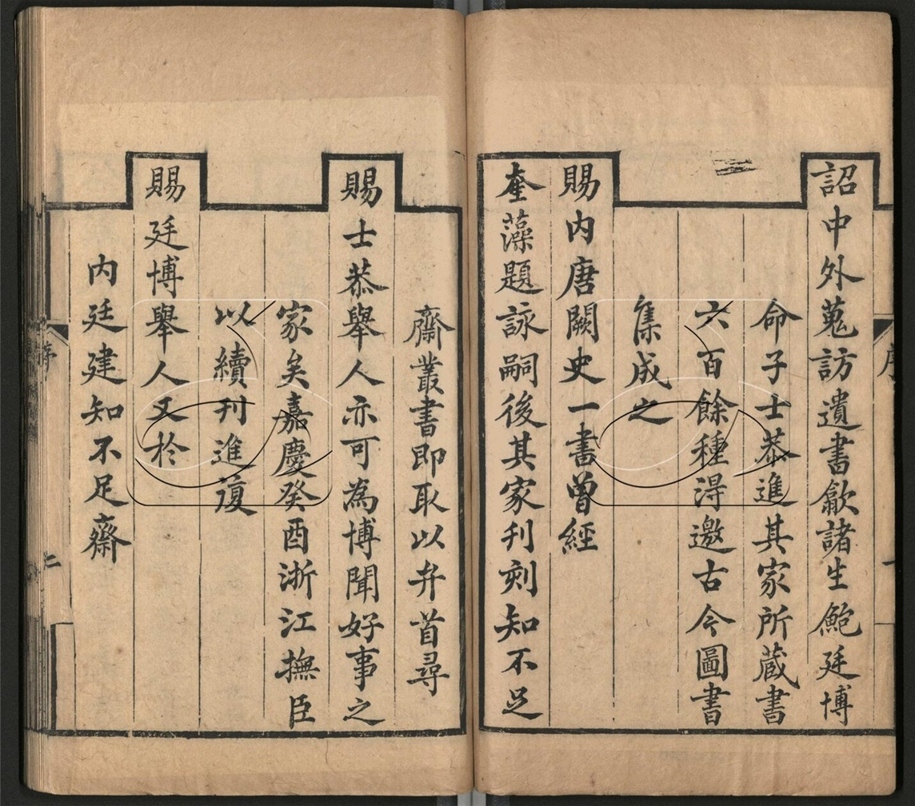 詔中外蒐訪遺書歙諸生鮑廷博
命子士恭進其家所藏書
六百餘種得邀古今圖書
集成之
賜內唐闕史一書曾經
奎藻題詠嗣後其家刊刻知不足
齋叢書即取以弁首尋
賜士恭舉人亦可為博聞好事之
家矣嘉慶癸酉浙江撫臣
以續刊進復
賜廷博舉人又於
內廷建知不足齋
序
二